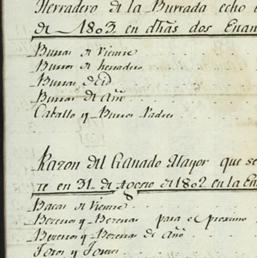 Herradero de la Burrada echo e
de 1803 en dhâs dos Enan
Burras de Vientre
Burros de herradero
Burras de id
Burras de Año
Caballo y Burros Padres
Razon del Ganado Mayor que se
re en 31 de Agosto de 1802 en la En
Bacas de Vientre
Becerros y Becerras para el proximo
Becerros y Becerras de Año
Toros y Toretes